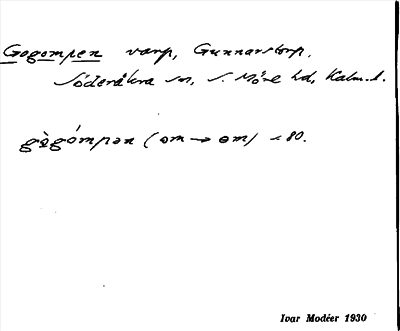 Gogompen varp, Gunnarstorp,
Söderåkra sn, S. Möre hd, Kalm. l.
gògómpən (om → ɵm) < 80.
Ivar Modéer 1930